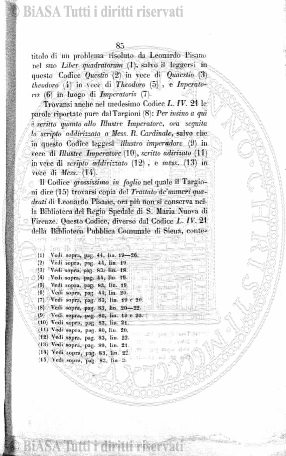 © BIASA Tutti i diritti riservati
85
titolo di un problema risoluto da Leonardo Pisano
nel suo Liber quadratorum (1), salvo il leggersi in
questo Codice Questio (2) in vece di Quaestio (3)
theodoro (4) in vece di Theodoro (5) , e Imperato-
ris (6) in luogo di Imperatoris (7).
Trovansi anche nel medesimo Codice L. IV. 21 le
parole riportate pure dal Targioni (8): Per insino a qui
è scritto quanto allo Illustre Imperatore, ora seguita
lo scripto addirizzato a Mess. R. Cardinale, salvo che
in questo Codice leggesi illustro imperadore (9) in
vece di Illustre Imperatore (10), scritto adirizato (11)
in vece di scripto addirizzato (12) , e mess. (13) in
vece di Mess. (14).
Il Codice grossissimo in foglio nel quale il Targio-
ni dice (15) trovarsi copia del Trattato de'numeri qua-
drati di Leonardo Pisano, ora più non si conserva nel-
la Biblioteca del Regio Spedale di S. Maria Nuova di
Firenze. Questo Codice, diverso dal Codice L. IV. 21
della Biblioteca Pubblica Comunale di Siena, conte-
(1) Vedi sopra, pag. 44, lin. 19—20.
(2) Vedi sopra, pag. 44, lin. 19.
(3) Vedi sopra, pag. 83, lin. 18.
(4) Vedi sopra, pag. 44, lin. 19.
(5) Vedi sopra, pag. 83, lin. 19.
(6) Vedi sopra, pag. 44, lin. 20.
(7) Vedi sopra, pag. 83, lin. 19 e 20.
(8) Vedi sopra, pag. 83, lin. 20—22.
(9) Vedi sopra, pag. 80, lin. 19 e 20.
(10) Vedi sopra, pag. 83, lin. 21.
(11) Vedi sopra, pag. 80, lin. 20.
(12) Vedi sopra, pag. 83, lin.
(13) Vedi sopra, pag. 80, lin. 21.
(14) Vedi sopra, pag. 83, lin. 22.
(15) Vedi sopra, pag. 82, lin.
© BIASA Tutti i diritti riservati